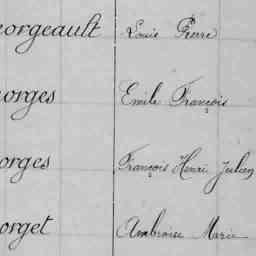 eorgeault Louis Pierre
eorges Emile François
orges François Henri Julien
orget Ambroise Marie